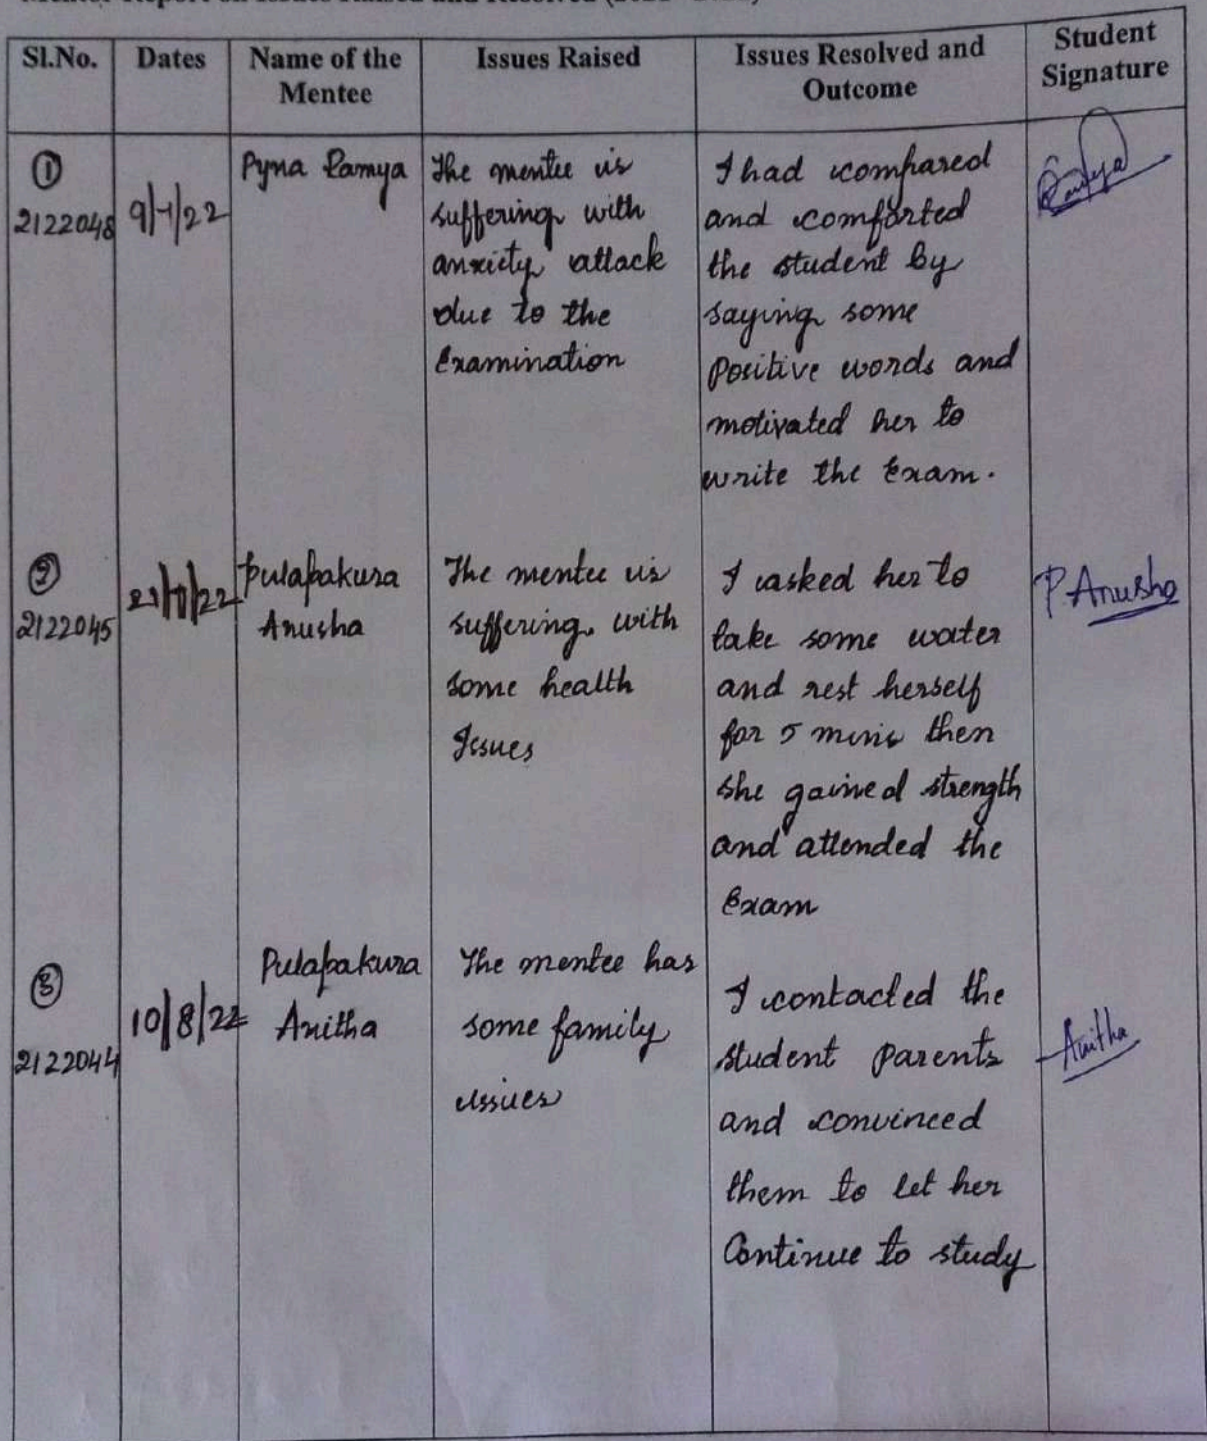 Sl.No.
Dates
Name of the
Mentee
Issues Raised
Issues Resolved and
Outcome
Student
Signature
①
2122048
9/1/22
Pyna Ramya
The mentee is
suffering with
anxiety attack
due to the
Examination
I had compared
and comforted
the student by
saying some
Positive words and
motivated her to
write the Exam.
Ramya
②
2122045
21/1/22
Pulapakura
Anusha
The mentee is
suffering with
some health
Issues
I asked her to
take some water
and rest herself
for 5 mins then
she gained strength
and attended the
Exam
P. Anusha
③
2122044
10/8/22
Pulapakura
Anitha
The mentee has
some family
issues
I contacted the
student parents
and convinced
them to let her
Continue to study
Anitha